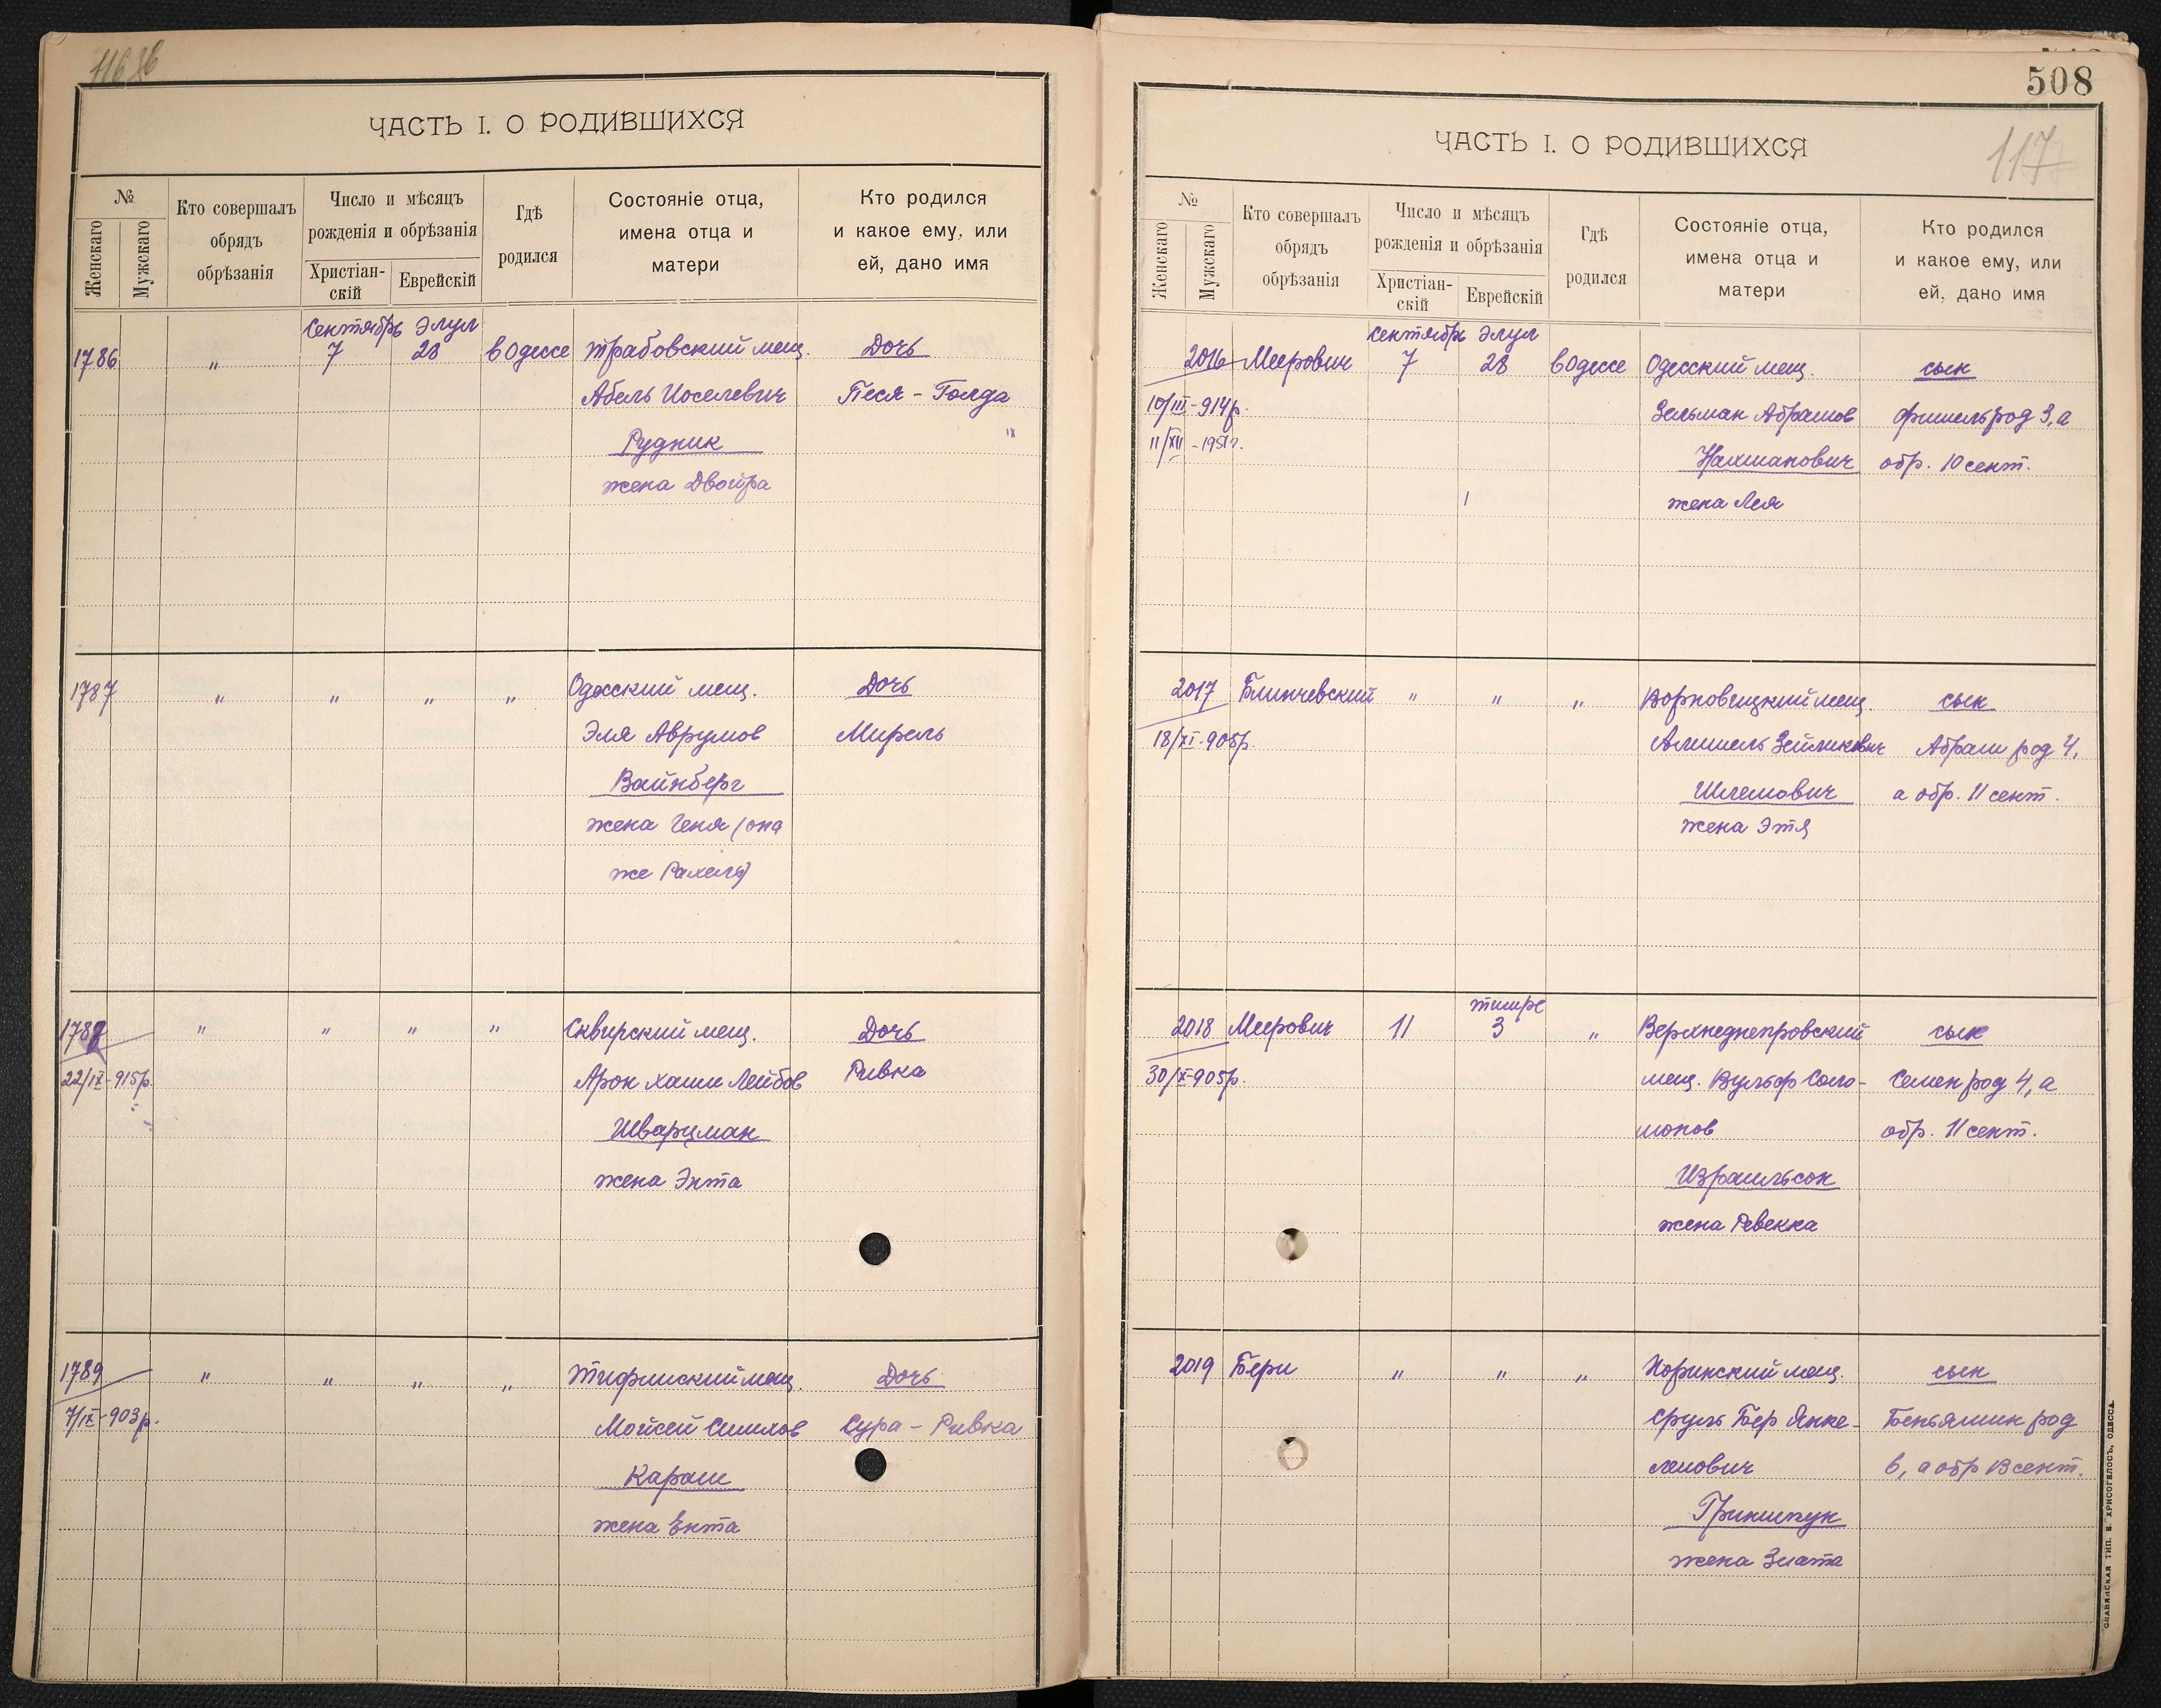 116
ЧАСТЬ I. О РОДИВШИХСЯ
№
Женскаго
Мужскаго
Кто совершалъ
обрядъ
обрѣзанія
Число и мѣсяцъ
рожденія и обрѣзанія
Христіан-
скій
Еврейскій
Гдѣ
родился
Состояніе отца,
имена отца и
матери
Кто родился
и какое ему, или
ей, дано имя
Сентябрь Элул
1786 " 7 28 в Одессе Трабовский мещ. Дочь
Абель Иоселевич Песя - Голда
Рудник
жена Двойра
1787 " " " " Одесский мещ. Дочь
Эля Аврумов Мирель
Вайнберг
жена Геня (она
же Рахель)
1788 " " " " Сквирский мещ. Дочь
22/IX-915р. Арон Хаим Лейбов Ривка
Шварцман
жена Энта
1789 " " " " мещ. Дочь
7/IX-903р. Мойсей Симхов Сура - Ривка
Караш
жена Ента
508
117
ЧАСТЬ I. О РОДИВШИХСЯ
№
Женскаго
Мужскаго
Кто совершалъ
обрядъ
обрѣзанія
Число и мѣсяцъ
рожденія и обрѣзанія
Христіан-
скій
Еврейскій
Гдѣ
родился
Состояніе отца,
имена отца и
матери
Кто родился
и какое ему, или
ей, дано имя
Сентябрь Элул
2016 Меерович 7 28 в Одессе Одесский мещ. сын
10/III-914р. Зельман Абрамов Фишель род 3, а
11/XII-1951г. Нахманович обр. 10 сент.
жена Лея
2017 Блинчевский " " " мещ. сын
18/XI-905р. Зейликович Абрам род 4,
Шлемович а обр. 11 сент.
жена Этя
тишре
2018 Меерович 11 3 " Верхнеднепровский сын
30/X-905р. мещ. Вульф Соло- Семен род 4, а
монов обр. 11 сент.
Израильсон
жена Ревекка
2019 Бери " " " Норинский мещ. сын
Сруль Бер Янке- Беньямин род
левович 6, а обр 13 сент.
Гриншпун
жена Злата
СЛАВЯНСКАЯ ТИП. Н. ХРИСОГЕЛОСЪ, ОДЕССА.